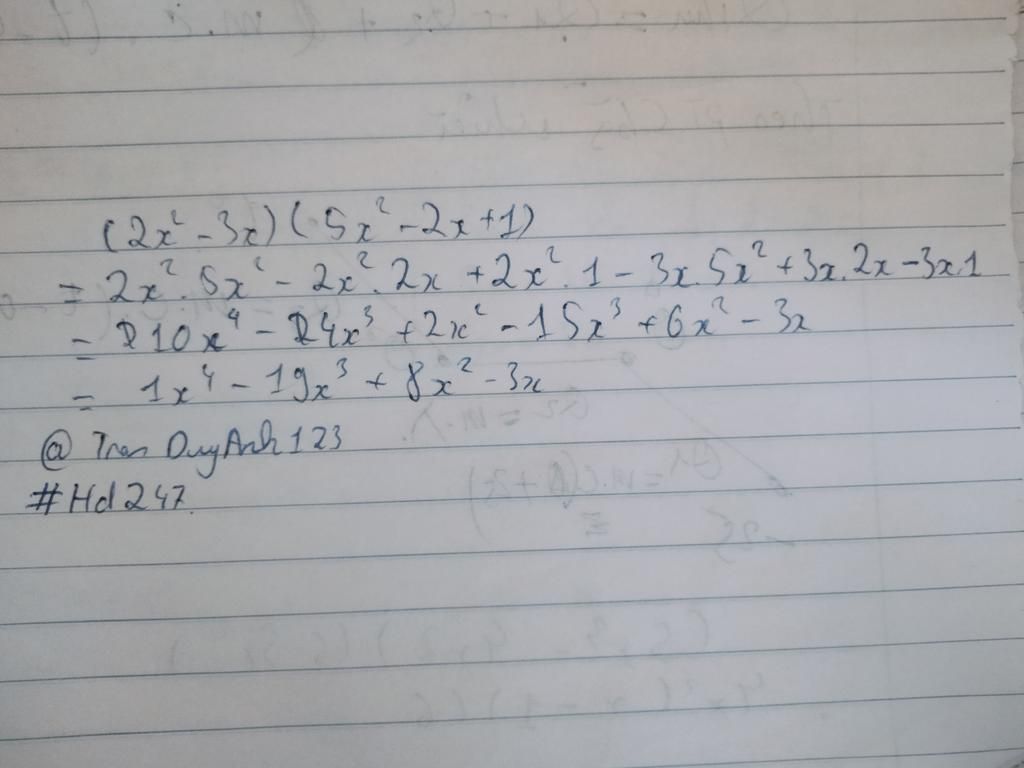 (2x² - 3x) (5x² - 2x + 1)
= 2x² . 5x² - 2x² . 2x + 2x² . 1 - 3x . 5x² + 3x . 2x - 3x . 1
= 10x⁴ - 4x³ + 2x² - 15x³ + 6x² - 3x
= 1x⁴ - 19x³ + 8x² - 3x
@ Tran Duy Anh 123
#Hd247.